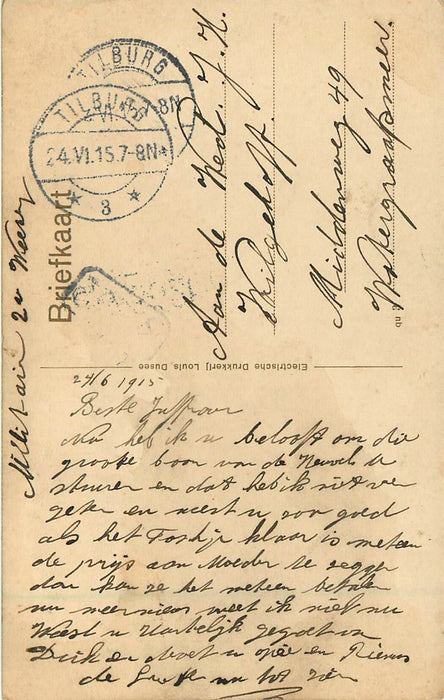 TILBURG
TILBURG
8N
24.VI.15.7-8N
3
Briefkaart
Aan de Wed. J. H.
Middenweg 49
Watergraafsmeer.
Electrische Drukkerij Louis. Dusee
Millitair
24/6 1915
Beste Juffrouw
Nu heb ik u belooft om die
groote boon van de te
sturen en dat heb ik niet ver
geten en weest u zoo goed
als het klaar is meteen
de prijs aan Moeder te zegge
dan kan ze het meteen betalen
nu meer nieuws weet ik niet nu
Weest u Hartelijk gegroet van
Dirk en doet u opoe en
de nu tot zien